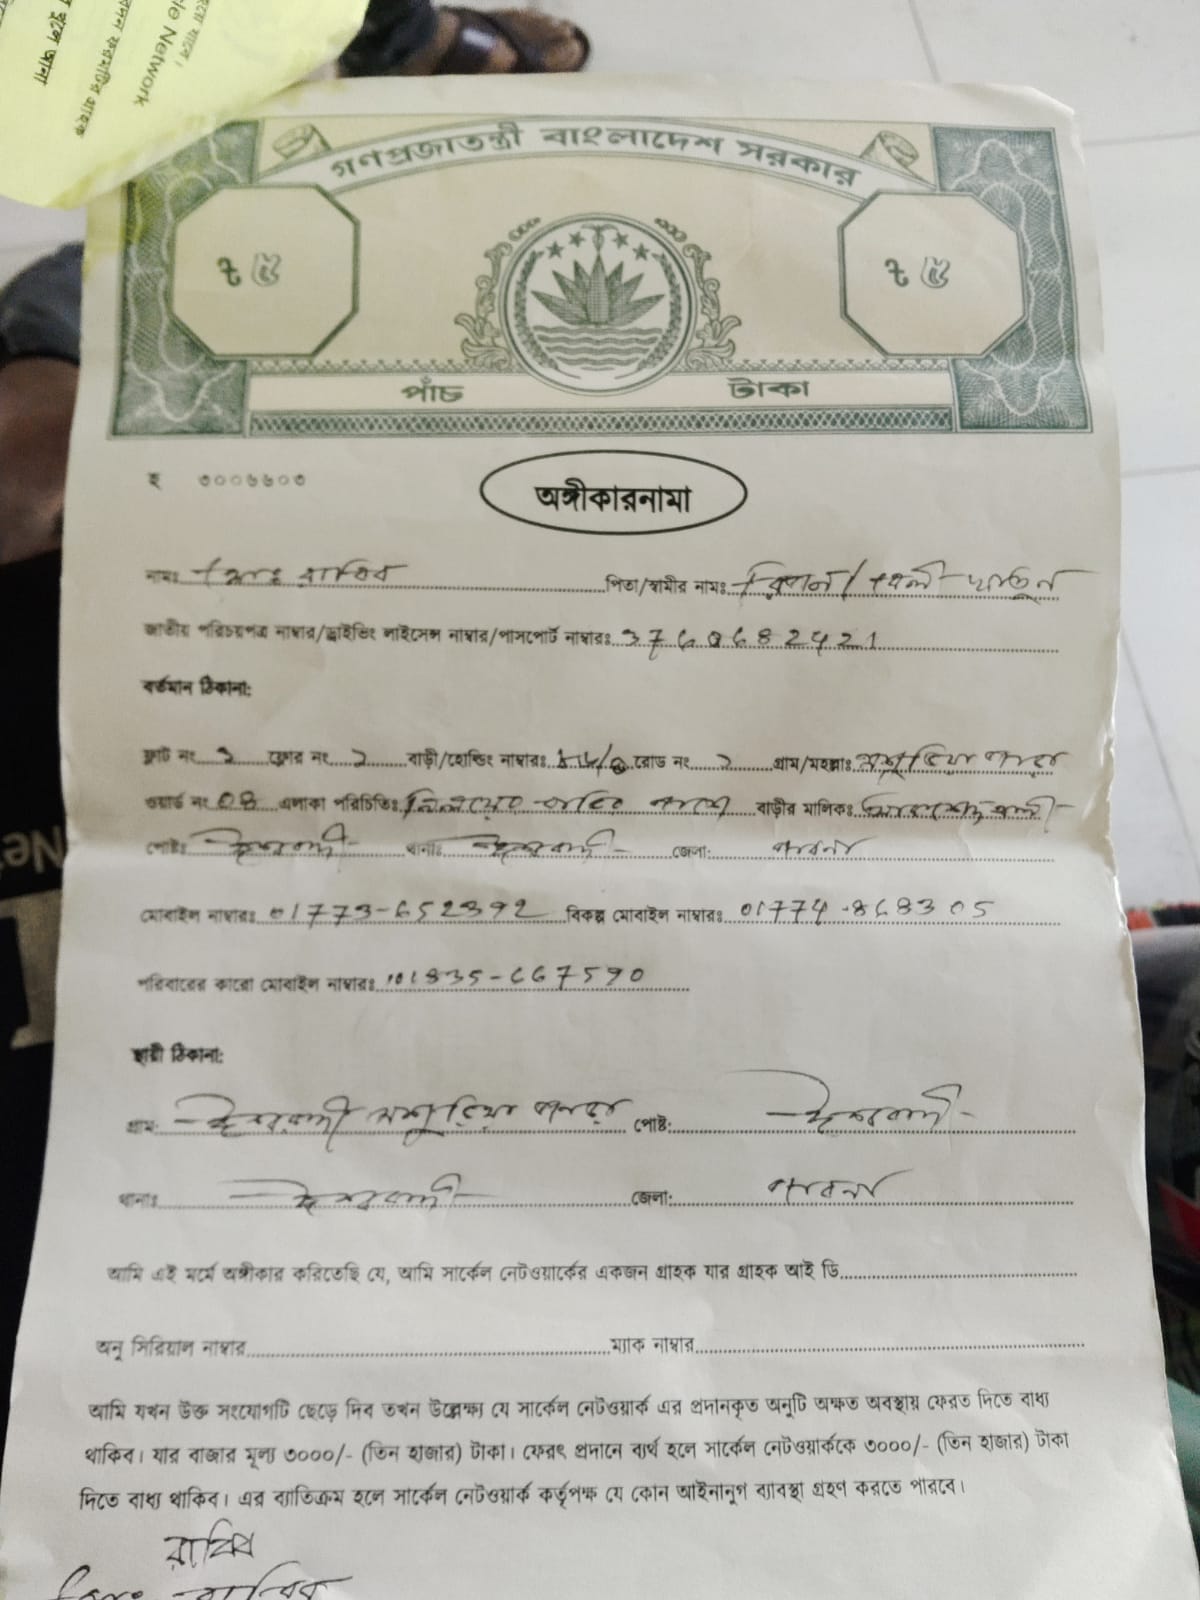 Network
গণপ্রজাতন্ত্রী বাংলাদেশ সরকার
৳ ৫ ৳ ৫
পাঁচ টাকা
হ ৩০০৬৬০৩
অঙ্গীকারনামা
নামঃ মোঃ রাব্বি পিতা/স্বামীর নামঃ রিপন/ খাতুন
জাতীয় পরিচয়পত্র নাম্বার/ড্রাইভিং লাইসেন্স নাম্বার/পাসপোর্ট নাম্বারঃ
বর্তমান ঠিকানা:
ফ্লাট নং ২ ফ্লোর নং ২ বাড়ী/হোল্ডিং নাম্বারঃ রোড নং ২ গ্রাম/মহল্লাঃ মশুরিয়া পাড়া
ওয়ার্ড নং 04 এলাকা পরিচিতিঃ পাশে বাড়ীর মালিকঃ
পোষ্টঃ ঈশ্বরদী থানাঃ ঈশ্বরদী জেলা: পাবনা
মোবাইল নাম্বারঃ 01773-652392 বিকল্প মোবাইল নাম্বারঃ 01774-868305
পরিবারের কারো মোবাইল নাম্বারঃ 01835-667590
স্থায়ী ঠিকানা:
গ্রাম: ঈশ্বরদী মশুরিয়া পাড়া পোষ্ট: ঈশ্বরদী
থানাঃ ঈশ্বরদী জেলা: পাবনা
আমি এই মর্মে অঙ্গীকার করিতেছি যে, আমি সার্কেল নেটওয়ার্কের একজন গ্রাহক যার গ্রাহক আই ডি
অনু সিরিয়াল নাম্বার ম্যাক নাম্বার
আমি যখন উক্ত সংযোগটি ছেড়ে দিব তখন উল্লেক্ষ্য যে সার্কেল নেটওয়ার্ক এর প্রদানকৃত অনুটি অক্ষত অবস্থায় ফেরত দিতে বাধ্য
থাকিব। যার বাজার মূল্য ৩০০০/- (তিন হাজার) টাকা। ফেরৎ প্রদানে ব্যর্থ হলে সার্কেল নেটওয়ার্ককে ৩০০০/- (তিন হাজার) টাকা
দিতে বাধ্য থাকিব। এর ব্যাতিক্রম হলে সার্কেল নেটওয়ার্ক কর্তৃপক্ষ যে কোন আইনানুগ ব্যাবস্থা গ্রহণ করতে পারবে।
রাব্বি